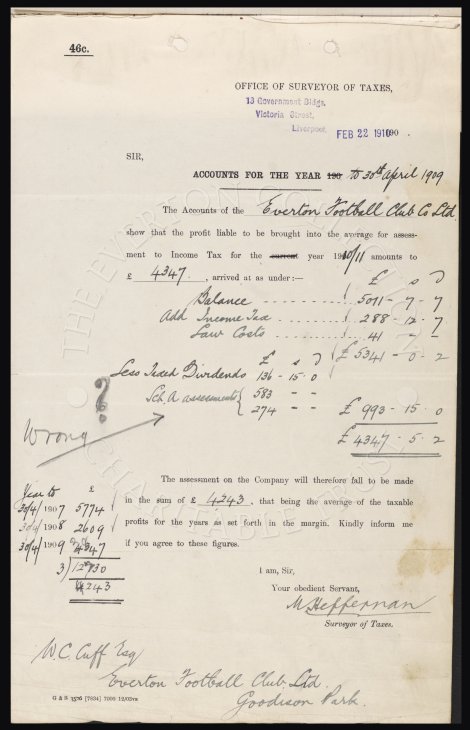 46c.
OFFICE OF SURVEYOR OF TAXES,
13 Government Bldgs.
Victoria Street,
Liverpool,
FEB 22 1910
190 .
SIR,
ACCOUNTS FOR THE YEAR 190 to 30th April 1909
The Accounts of the Everton Football Club Co Ltd.
show that the profit liable to be brought into the average for assess-
ment to Income Tax for the current year 1910/11 amounts to
£ 4347 , arrived at as under:—
£ s D
Balance 5011 - 7 - 7
Add Income Tax 288 - 12 - 7
Law Costs 41 - -
£ 5341 - 0 - 2
£ s D
Less Taxed Dividends 136 - 15 - 0
Sch. A assessments { 583 - -
274 - -
£ 993 - 15 . 0
£ 4347 - 5 . 2
?
Wrong
The assessment on the Company will therefore fall to be made
in the sum of £ 4243 , that being the average of the taxable
profits for the years as set forth in the margin. Kindly inform me
if you agree to these figures.
Year to £
30/4/ 1907 5774
30/4/ 1908 2609
30/4/ 1909 4347
3) 12730
4243
I am, Sir,
Your obedient Servant,
M Heffernan
Surveyor of Taxes.
W.C. Cuff Esq
Everton Football Club Ltd.
Goodison Park.
G & S 1576 [7934] 7000 12/03
THE EVERTON COLLECTION
CHARITABLE TRUST